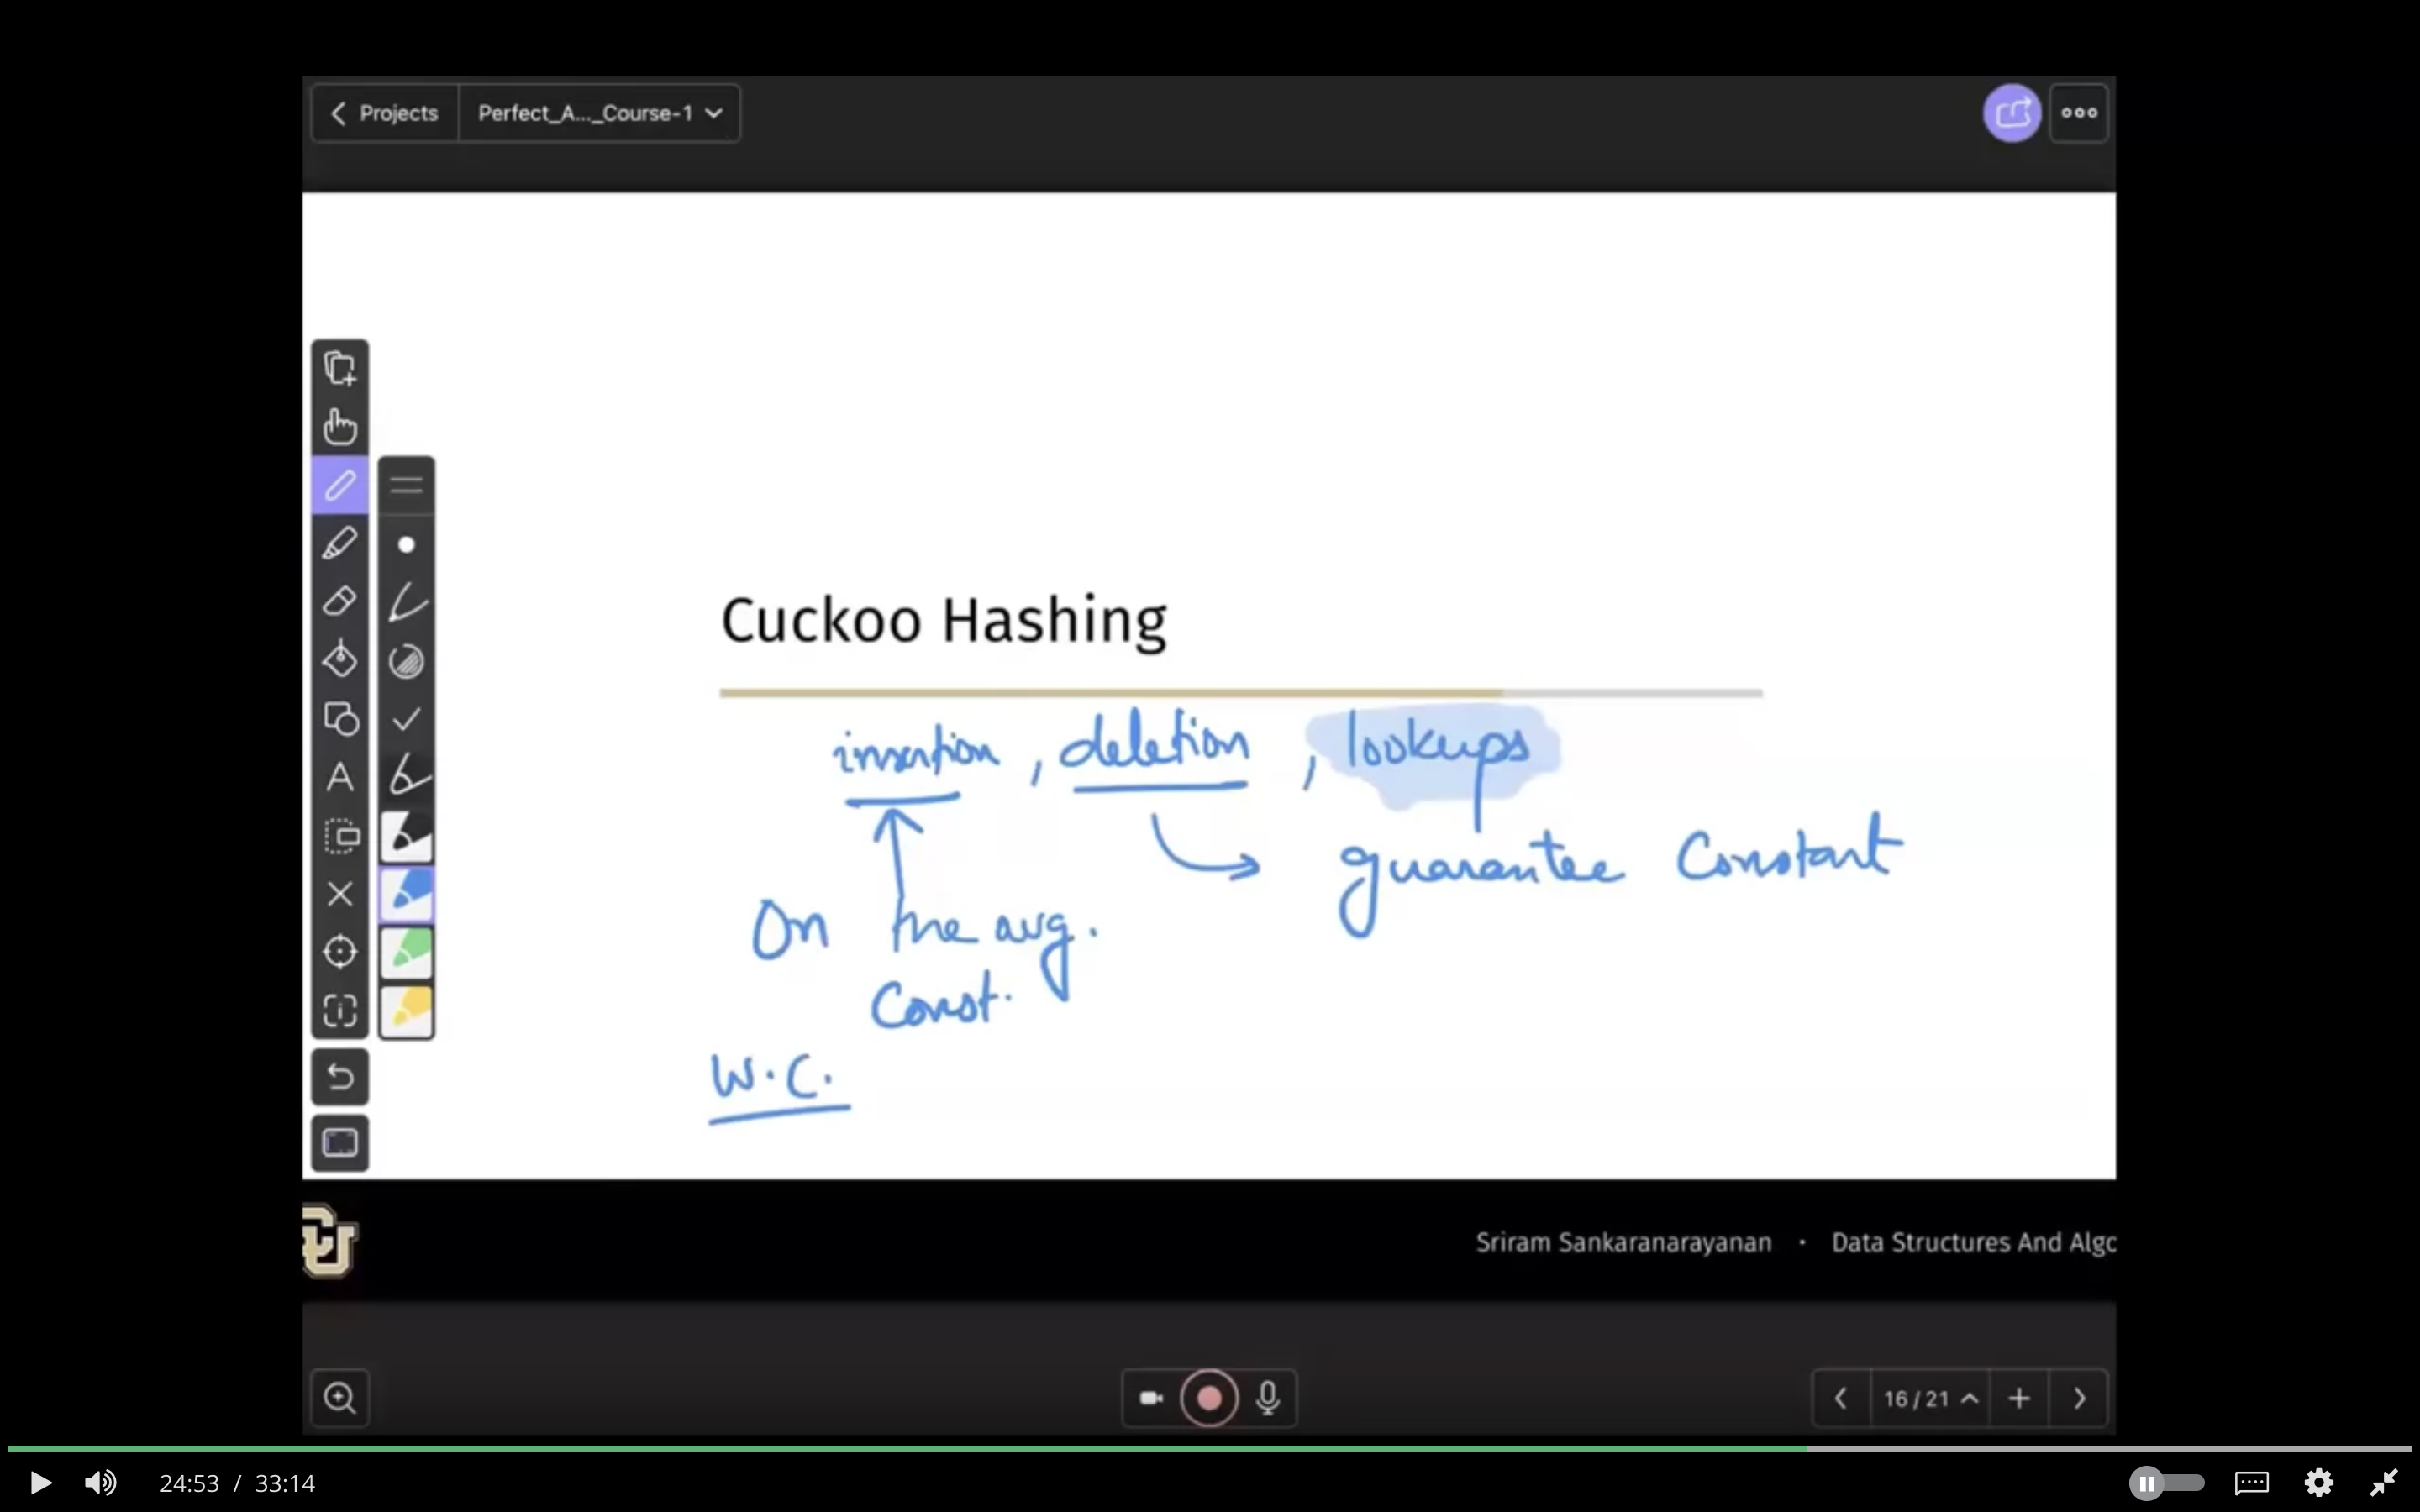 Projects Perfect_A..._Course-1
Cuckoo Hashing
insertion , deletion , lookups
guarantee Constant
On the avg.
Const.
W.C.
CU
Sriram Sankaranarayanan · Data Structures And Algo
16 / 21
24:53 / 33:14